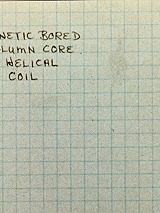 NETIC BORED
LUMN CORE.
HELICAL
COIL